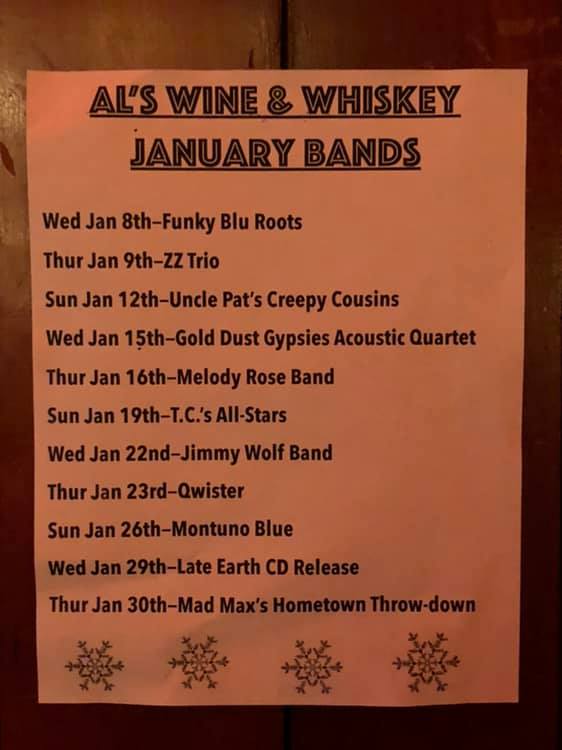 AL'S WINE & WHISKEY
JANUARY BANDS
Wed Jan 8th–Funky Blu Roots
Thur Jan 9th–ZZ Trio
Sun Jan 12th–Uncle Pat's Creepy Cousins
Wed Jan 15th–Gold Dust Gypsies Acoustic Quartet
Thur Jan 16th–Melody Rose Band
Sun Jan 19th–T.C.'s All-Stars
Wed Jan 22nd–Jimmy Wolf Band
Thur Jan 23rd–Qwister
Sun Jan 26th–Montuno Blue
Wed Jan 29th–Late Earth CD Release
Thur Jan 30th–Mad Max's Hometown Throw-down